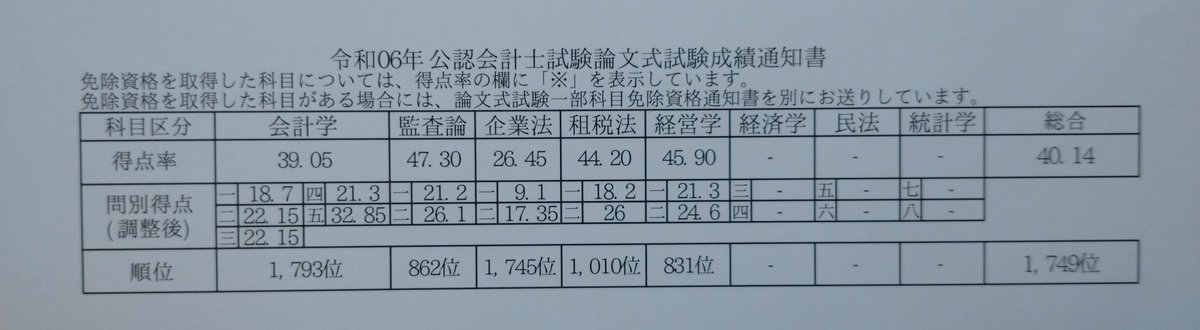 令和06年 公認会計士試験論文式試験成績通知書
免除資格を取得した科目については、得点率の欄に「※」を表示しています。
免除資格を取得した科目がある場合には、論文式試験一部科目免除資格通知書を別にお送りしています。
科目区分 会計学 監査論 企業法 租税法 経営学 経済学 民法 統計学 総合
得点率 39.05 47.30 26.45 44.20 45.90 - - - 40.14
問別得点(調整後) 一 18.7 四 21.3 一 21.2 一 9.1 一 18.2 一 21.3 三 - 五 - 七 -
二 22.15 五 32.85 二 26.1 二 17.35 二 26 二 24.6 四 - 六 - 八 -
三 22.15
順位 1,793位 862位 1,745位 1,010位 831位 - - - 1,749位